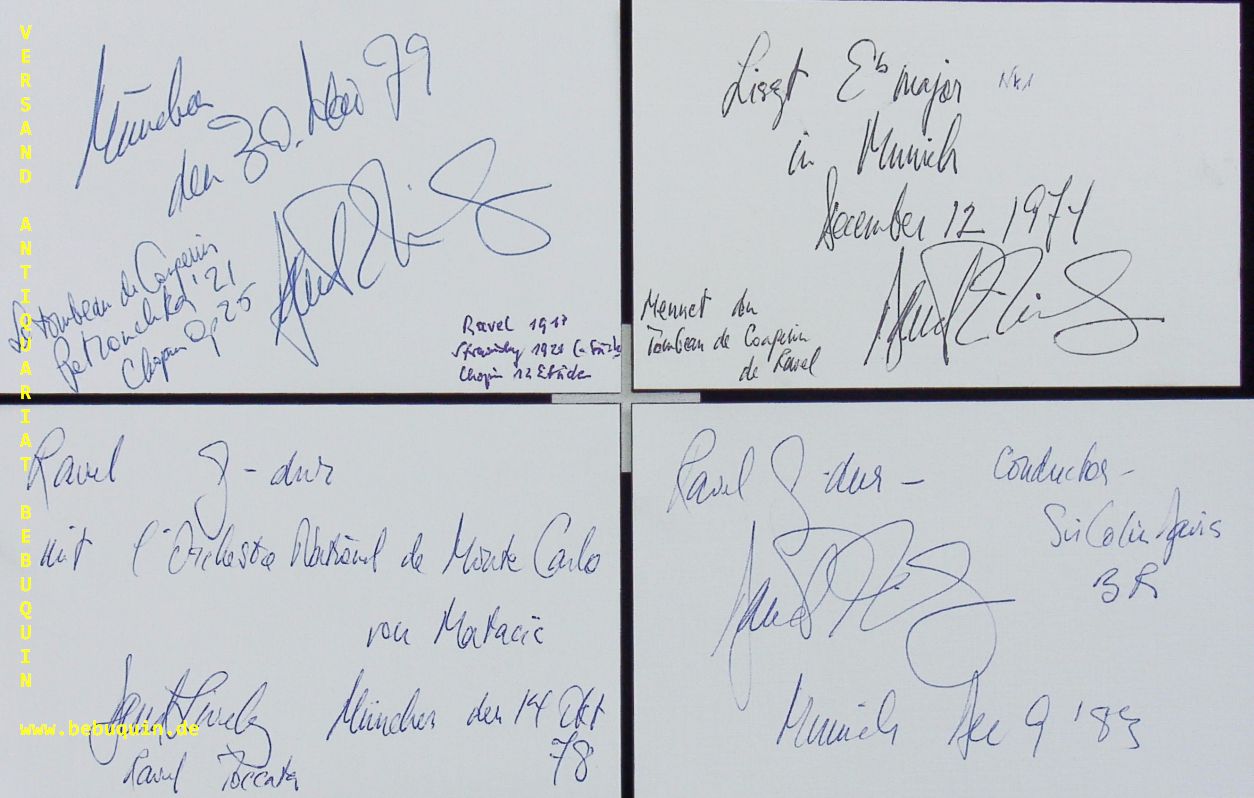 VERSAND ANTIQUARIAT BEBUQUIN
www.bebuquin.de
München
den 30. Mai 79
Le tombeau de Couperin
Petrouchka '21
Chopin Op 25
Ravel 1917
Strawinsky 1921
Chopin 12 Etüden
Liszt E♭ major Nr 1
in Munich
December 12 1974
Menuet du
Tombeau de Couperin
de Ravel
Ravel G-dur
mit l'Orchestre National de Monte Carlo
von Matacic
München den 14 Okt
78
Ravel Toccata
Ravel G-dur – Conductor –
Sir Colin Davis
BR
Munich Dec 9 '83